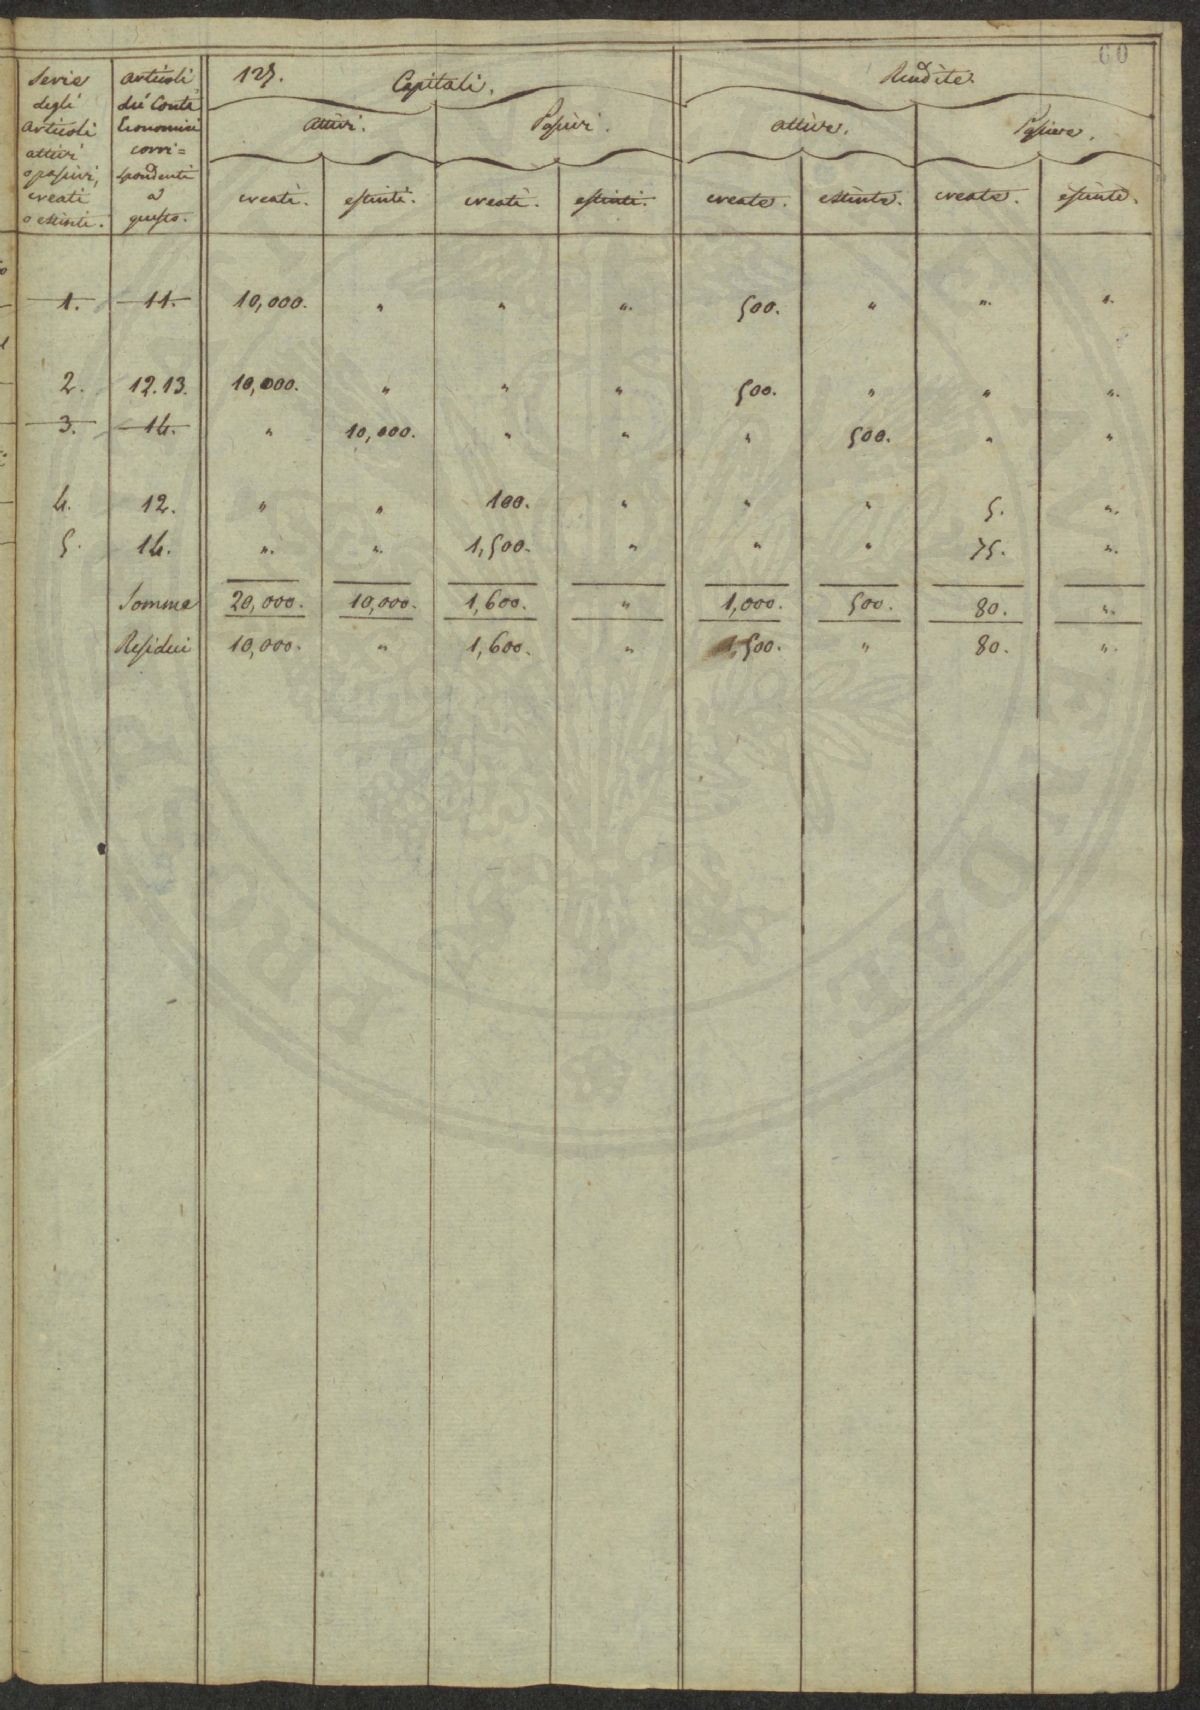 60
127. Capitali. Rendite.
Serie degli articoli attivi o passivi, creati o estinti. Articoli dei Conti Economici corri= spondenti a questo. Attivi. Passivi. attive. Passive.
creati. estinti. creati. estinti. create. estinte. create. estinte.
1. 11. 10,000. " " ". 500. " ". ".
2. 12.13. 10,000. " " " 500. " " ".
3. 14. " 10,000. " " " 500. " "
4. 12. " " 100. " " " 5. ".
5. 14. ". ". 1,500. " " " 75. ".
Somme 20,000. 10,000. 1,600. " 1,000. 500. 80. ".
Residui 10,000. " 1,600. " 500. " 80. ".